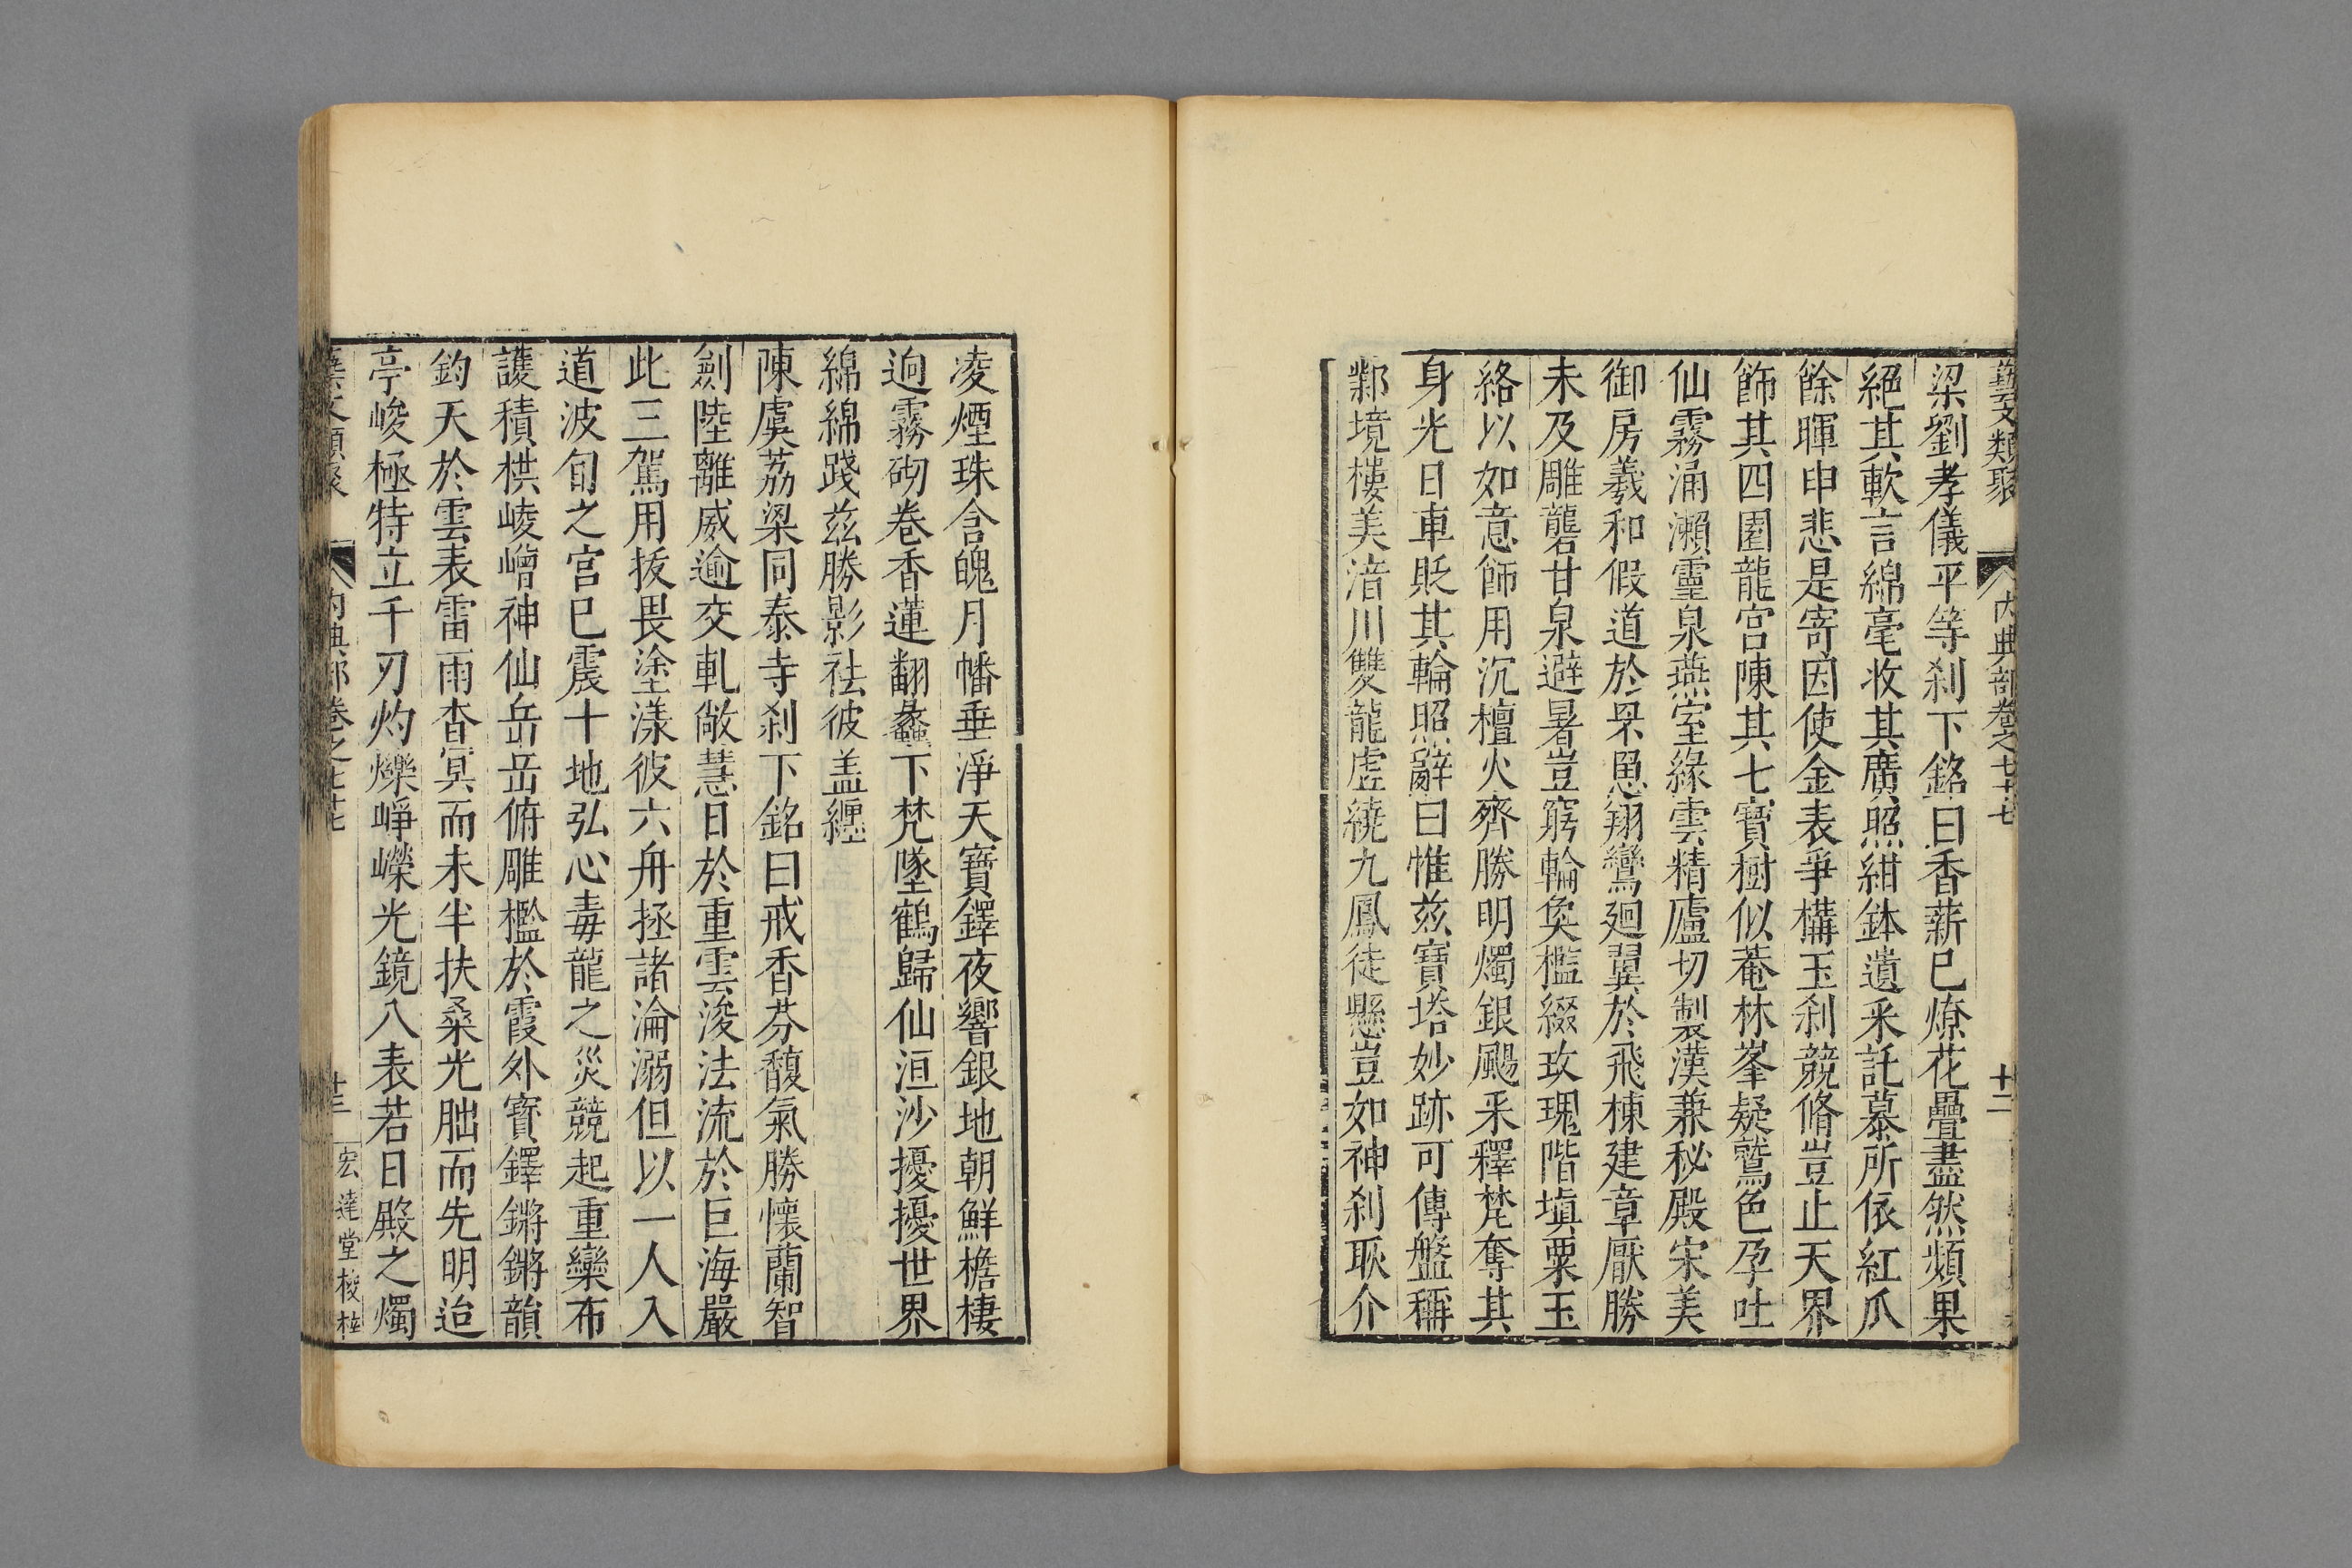 藝文類聚 內典部卷之七十七 十二
梁劉孝儀平等剎下銘曰香薪已燎花疊盡然頻果
絕其軟言綿毫收其廣照紺鉢遺釆託慕所依紅爪
餘暉申悲是寄因使金表爭構玉剎競脩豈止天界
飾其四園龍宮陳其七寶樹似菴林峯疑鷲色孕吐
仙霧涌瀨靈泉燕室緣雲精廬切製漢兼秘殿宋美
御房羲和假道於罘罳翔鸞廻翼於飛棟建章厭勝
未及雕礱甘泉避暑豈窮輪奐檻綴玫瑰階塡粟玉
絡以如意飾用沉檀火齊勝明燭銀颺釆釋梵奪其
身光日車貶其輪照辭曰惟茲寶塔妙跡可傳盤稱
鄴境樓美湆川雙龍虛繞九鳳徒懸豈如神剎耿介
凌煙珠含魄月幡垂淨天寶鐸夜響銀地朝鮮檐棲
逈霧砌卷香蓮翻蠡下梵墜鶴歸仙洹沙擾擾世界
綿綿踐茲勝影祛彼盖纏
陳虞荔梁同泰寺剎下銘曰戒香芬馥氣勝懷蘭智
劍陸離威逾交軋敞慧日於重雲浚法流於巨海嚴
此三駕用拔畏塗漾彼六舟拯諸淪溺但以一人入
道波旬之宮已震十地弘心毒龍之災競起重欒布
護積栱崚嶒神仙岳岳俯雕檻於霞外寳鐸鏘鏘韻
鈞天於雲表雷雨杳冥而未半扶桑光朏而先明迨
亭峻極特立千刃灼爍崢嶸光鏡八表若日殿之燭
藝文類聚 內典部卷之七十七 十三 宏達堂校柱